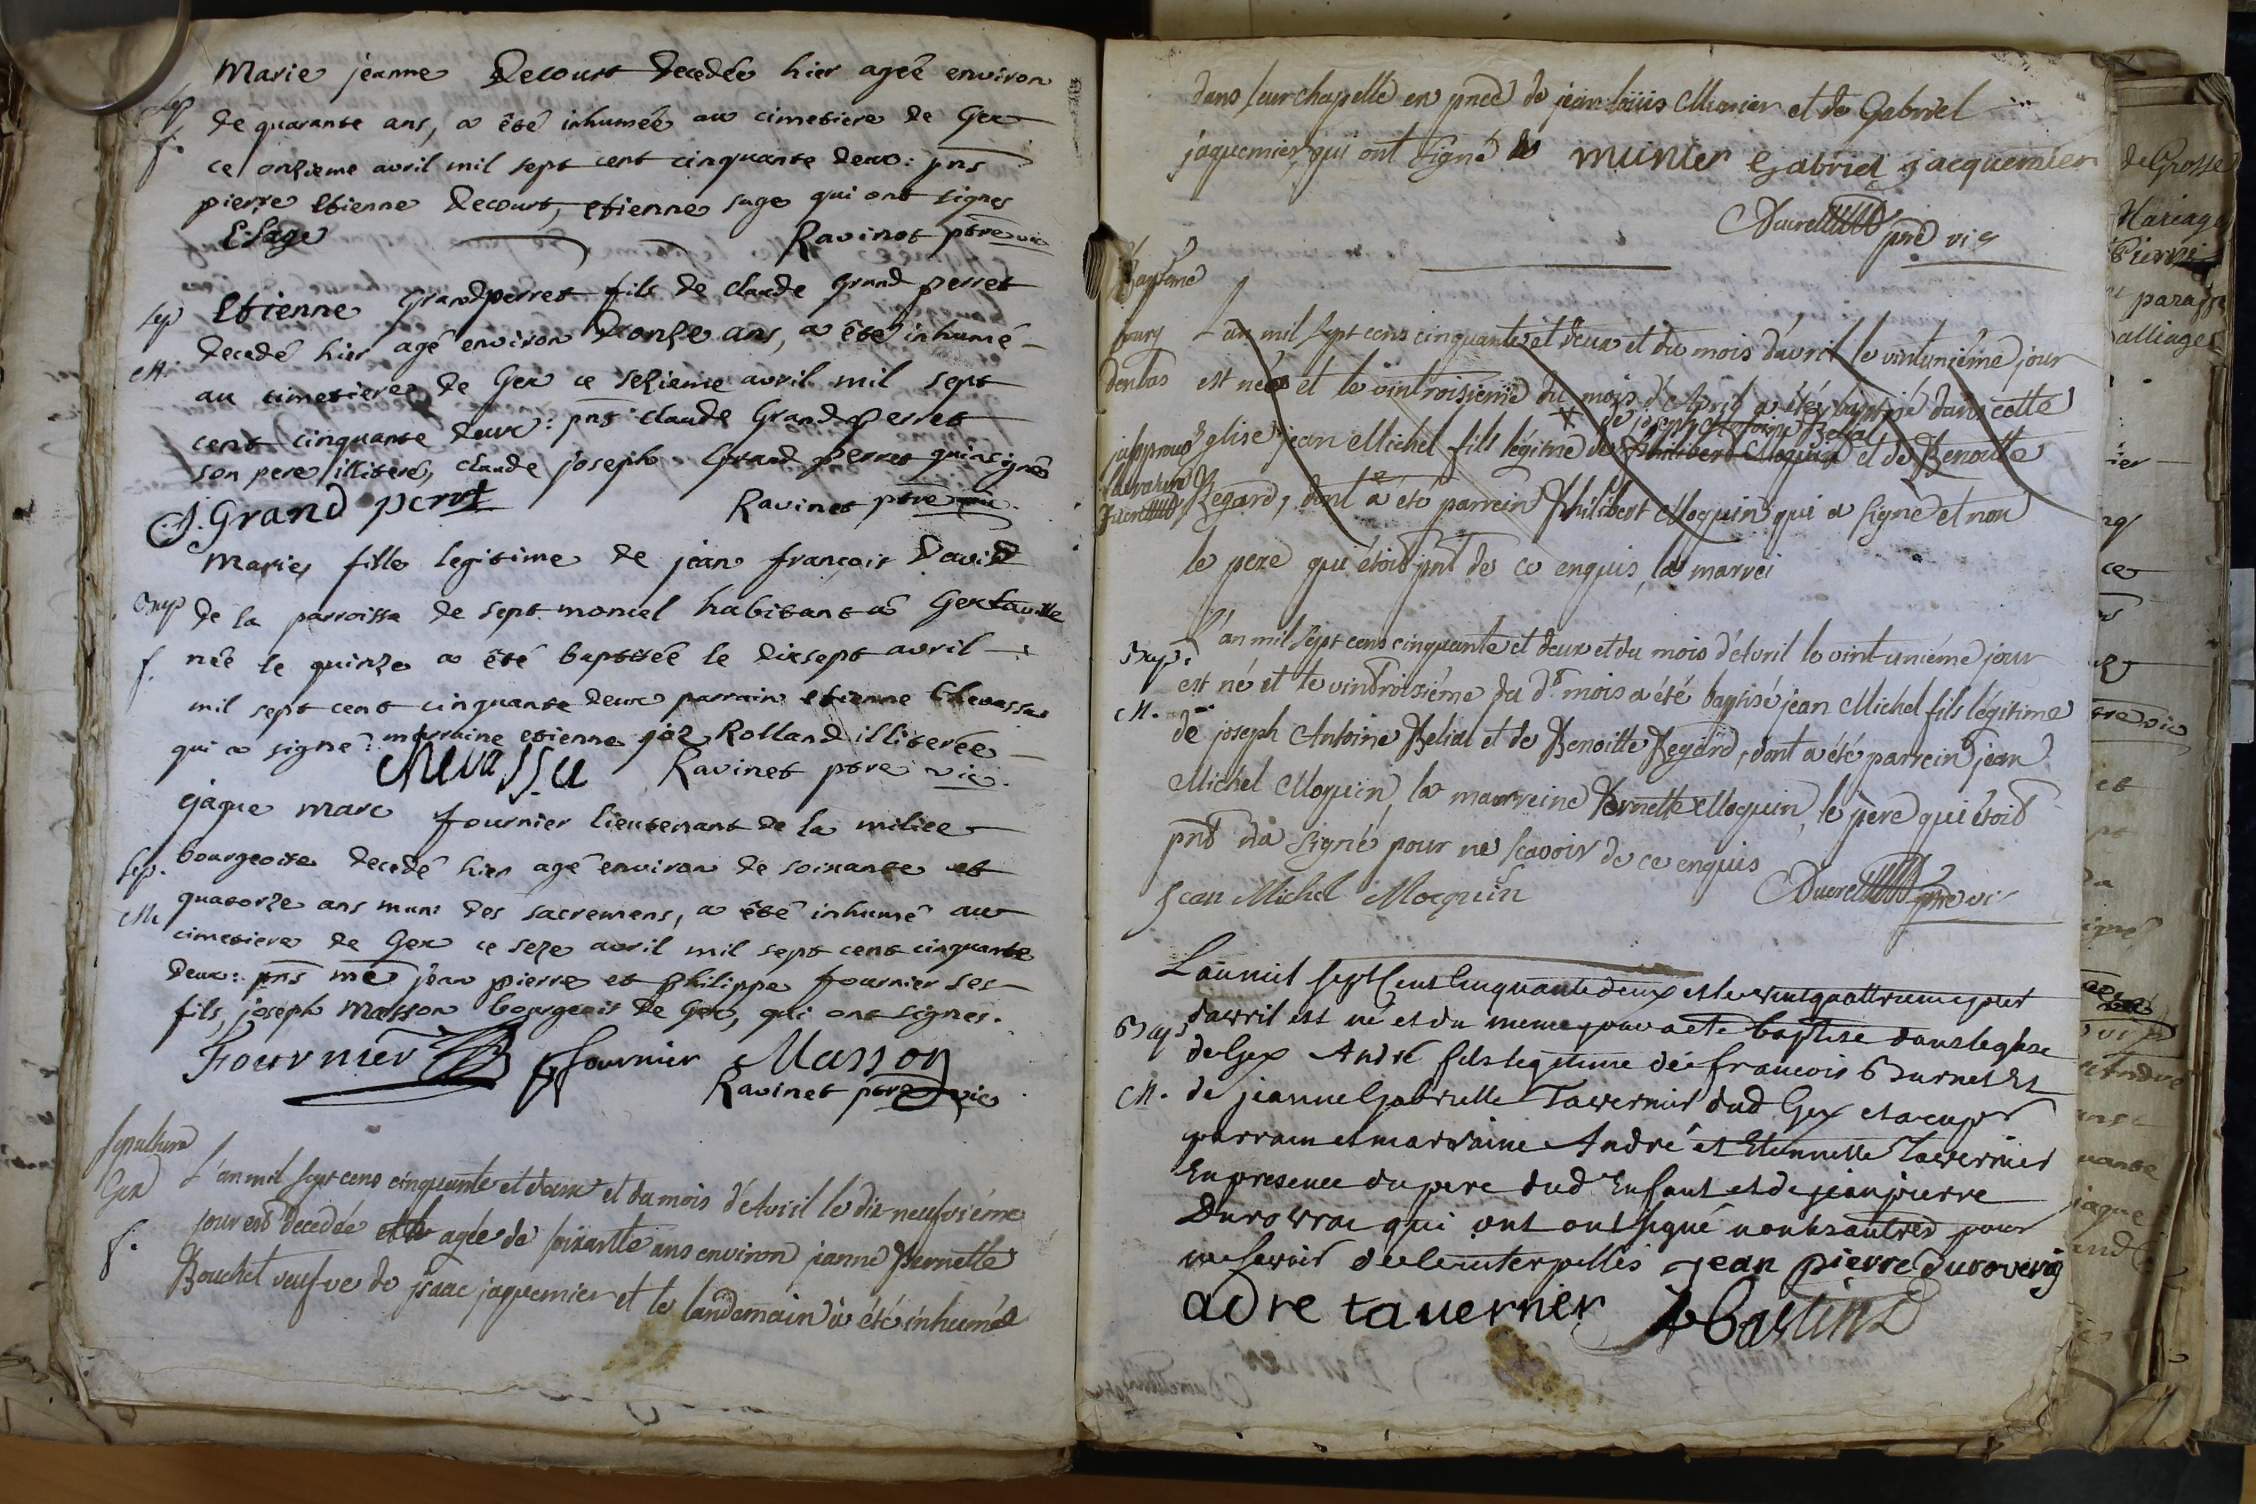 Marie jeanne Decourt decedée hier ageé environ
Sep
de quarante ans, a êté inhumeé au cimetiere de Gex
f.
ce onzieme avril mil sept cent cinquante deux: pns
pierre Etienne Decourt, etienne sage qui ont signes
E. Sage Ravinet ptre vic
Etienne Grandperret fils de claude Grand perret
Sep
decedé hier agé environ D'onze ans, a êté inhumé
M.
au cimetiere de Gex ce sezieme avril mil sept
cent cinquante deux: pns claude Grand perret
son pere illiteré, claude joseph Grand perret qui a signés
C. J. Grand perret Ravinet ptre vic
Marie, fille legitime de jean françois David
Bap de la parroisse de sept moncel habitant à Gex la ville
f. née le quinze a été baptisée le dixsept avril
mil sept cent cinquante deux parrain etienne Chevassu
qui a signé: marraine etienne joz Rolland illiterée
chevassu Ravinet ptre vic.
jaque marc fournier lieutenant de la milice
Sep. bourgeoise decedé hier agé environ de soixante et
M. quatorze ans muni des sacremens, a êté inhumé au
cimetiere de Gex ce seze avril mil sept cent cinquante
deux: pns me jean pierre et philippe fournier ses
fils, joseph Masson bourgeois de Gex, qui ont signés.
Fournier fournier Masson
Ravinet ptre vic
sepulture
Gex L'an mil sept cens cinquante et deux et du mois d'Avril le dix neufviéme
f. jour est decedée agée de soixante ans environ janne Pernette
Bouchet veufve de jsaac jaquemier et le landemain à été inhumée
dans leur chapelle en pnce de jean loüis Munier et de Gabriel
jaquemier, qui ont signé munier Gabriel jacquemier
Ducret ptre vic
Baptême
bourg L'an mil sept cens cinquante et deux et du mois d'avril le vintuniéme jour
denbas est né et le vintroisiéme du mois d'Avril a été baptisé dans cette
de joseph Antoine Belial
japprouve Eglise jean Michel fils légitime de Philibert Moquin et de Benoitte
la rature
Regard, dont a été parrein Philibert Moquin qui a signé et non
Ducret
le pere qui étoit pnt de ce enquis, la marrei
Bap. L'an mil sept cens cinquante et deux et du mois d'Avril le vint uniéme jour
M. est né et le vintroisiéme du dt mois a été baptisé jean Michel fils légitime
de joseph Antoine Belial et de Benoitte Regard, dont a été parrein jean
Michel Moquin, la marreine Pernette Moquin, le père qui étoit
pnt n'a signé pour ne scavoir de ce enquis
Jean Michel Mocquin Ducret ptre vic
L'an mil sept Cent Cinquante deux et le vint quattrieme jour
Bap d'avril est né et du meme jour a ete baptise dans leglise
de Gex André fils legitime de françois Burnet Et
M. de jeanne Gabrielle Tavernier dud Gex et a eu pr
parrain et marraine André et Etiennette Tavernier
En presence du pere dud Enfant et de jean pierre
Duroverai qui ont signé non les autres pour
ne savoir de le interpellés jean pierre duroverai
adre tauernier